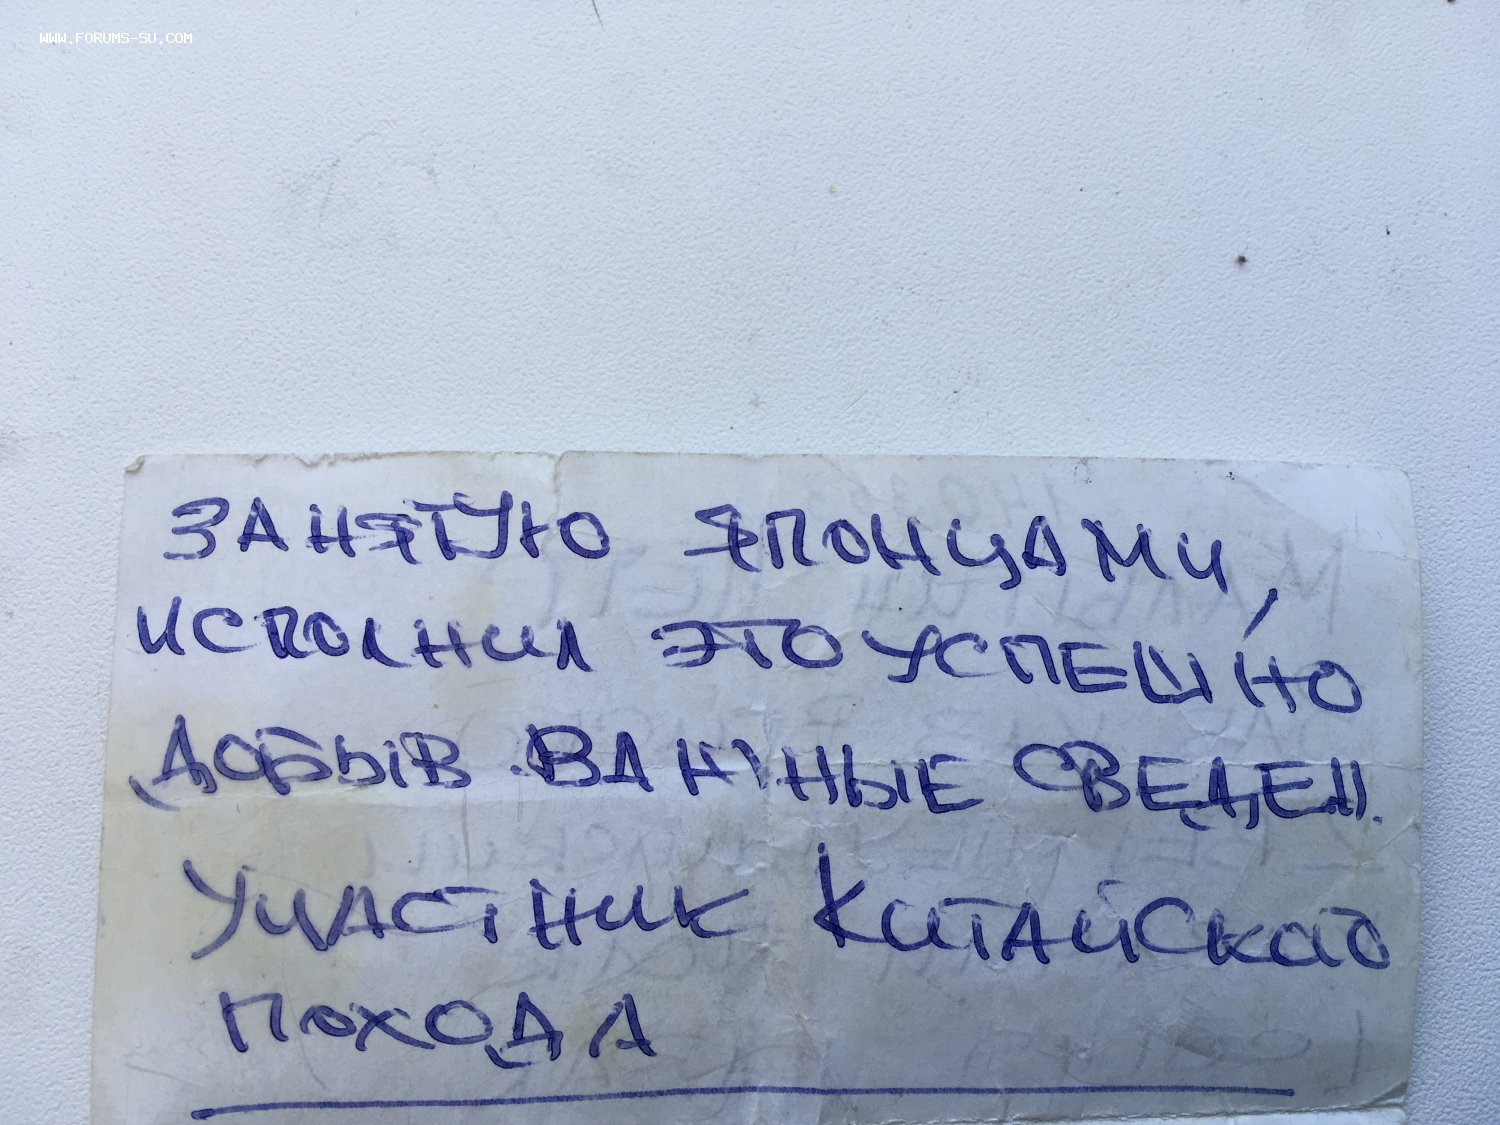 WWW.FORUMS-SU.COM
ЗАНЯТУЮ ЯПОНЦАМИ,
ИСПОЛНИЛ ЭТО УСПЕШНО
ДОБЫВ ВАЖНЫЕ СВЕДЕН.
УЧАСТНИК КИТАЙСКОГО
ПОХОДА